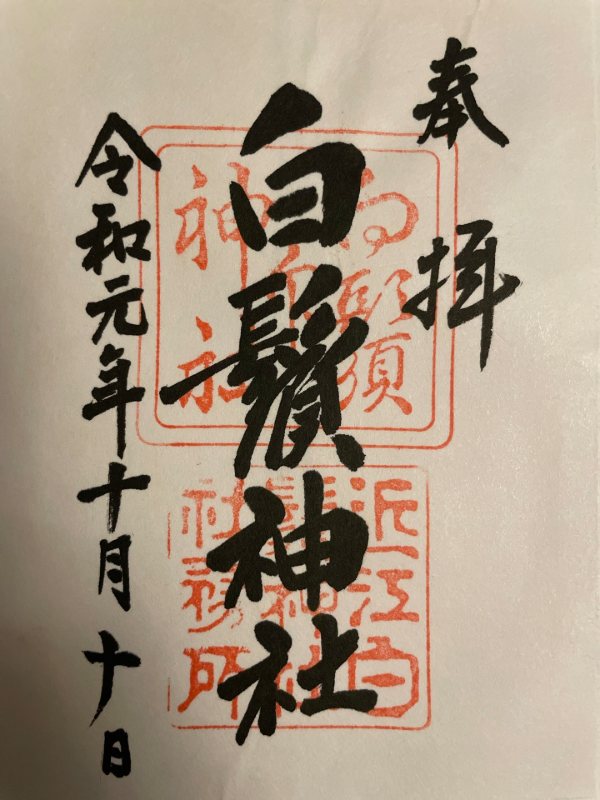 奉拝
白鬚神社
令和元年十月十日
白鬚
神社
近江白
鬚神社
社務所